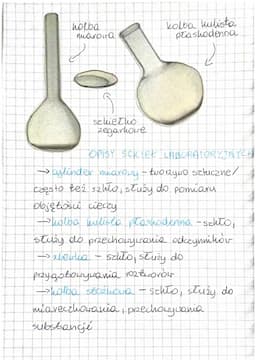 kolba
miarowa
kolba kulista
płaskodenna
szkiełko
zegarkowe
OPISY SZKIEŁ LABORATORYJNYCH
→ cylinder miarowy - tworzywo sztuczne/
często też szkło, służy do pomiaru
objętości cieczy
→ kolba kulista płaskodenna - szkło,
służy do przechowywania odczynników
→ zlewka - szkło, służy do
przygotowywania roztworów
→ kolba stożkowa - szkło, służy do
miareczkowania, przechowywania
substancji